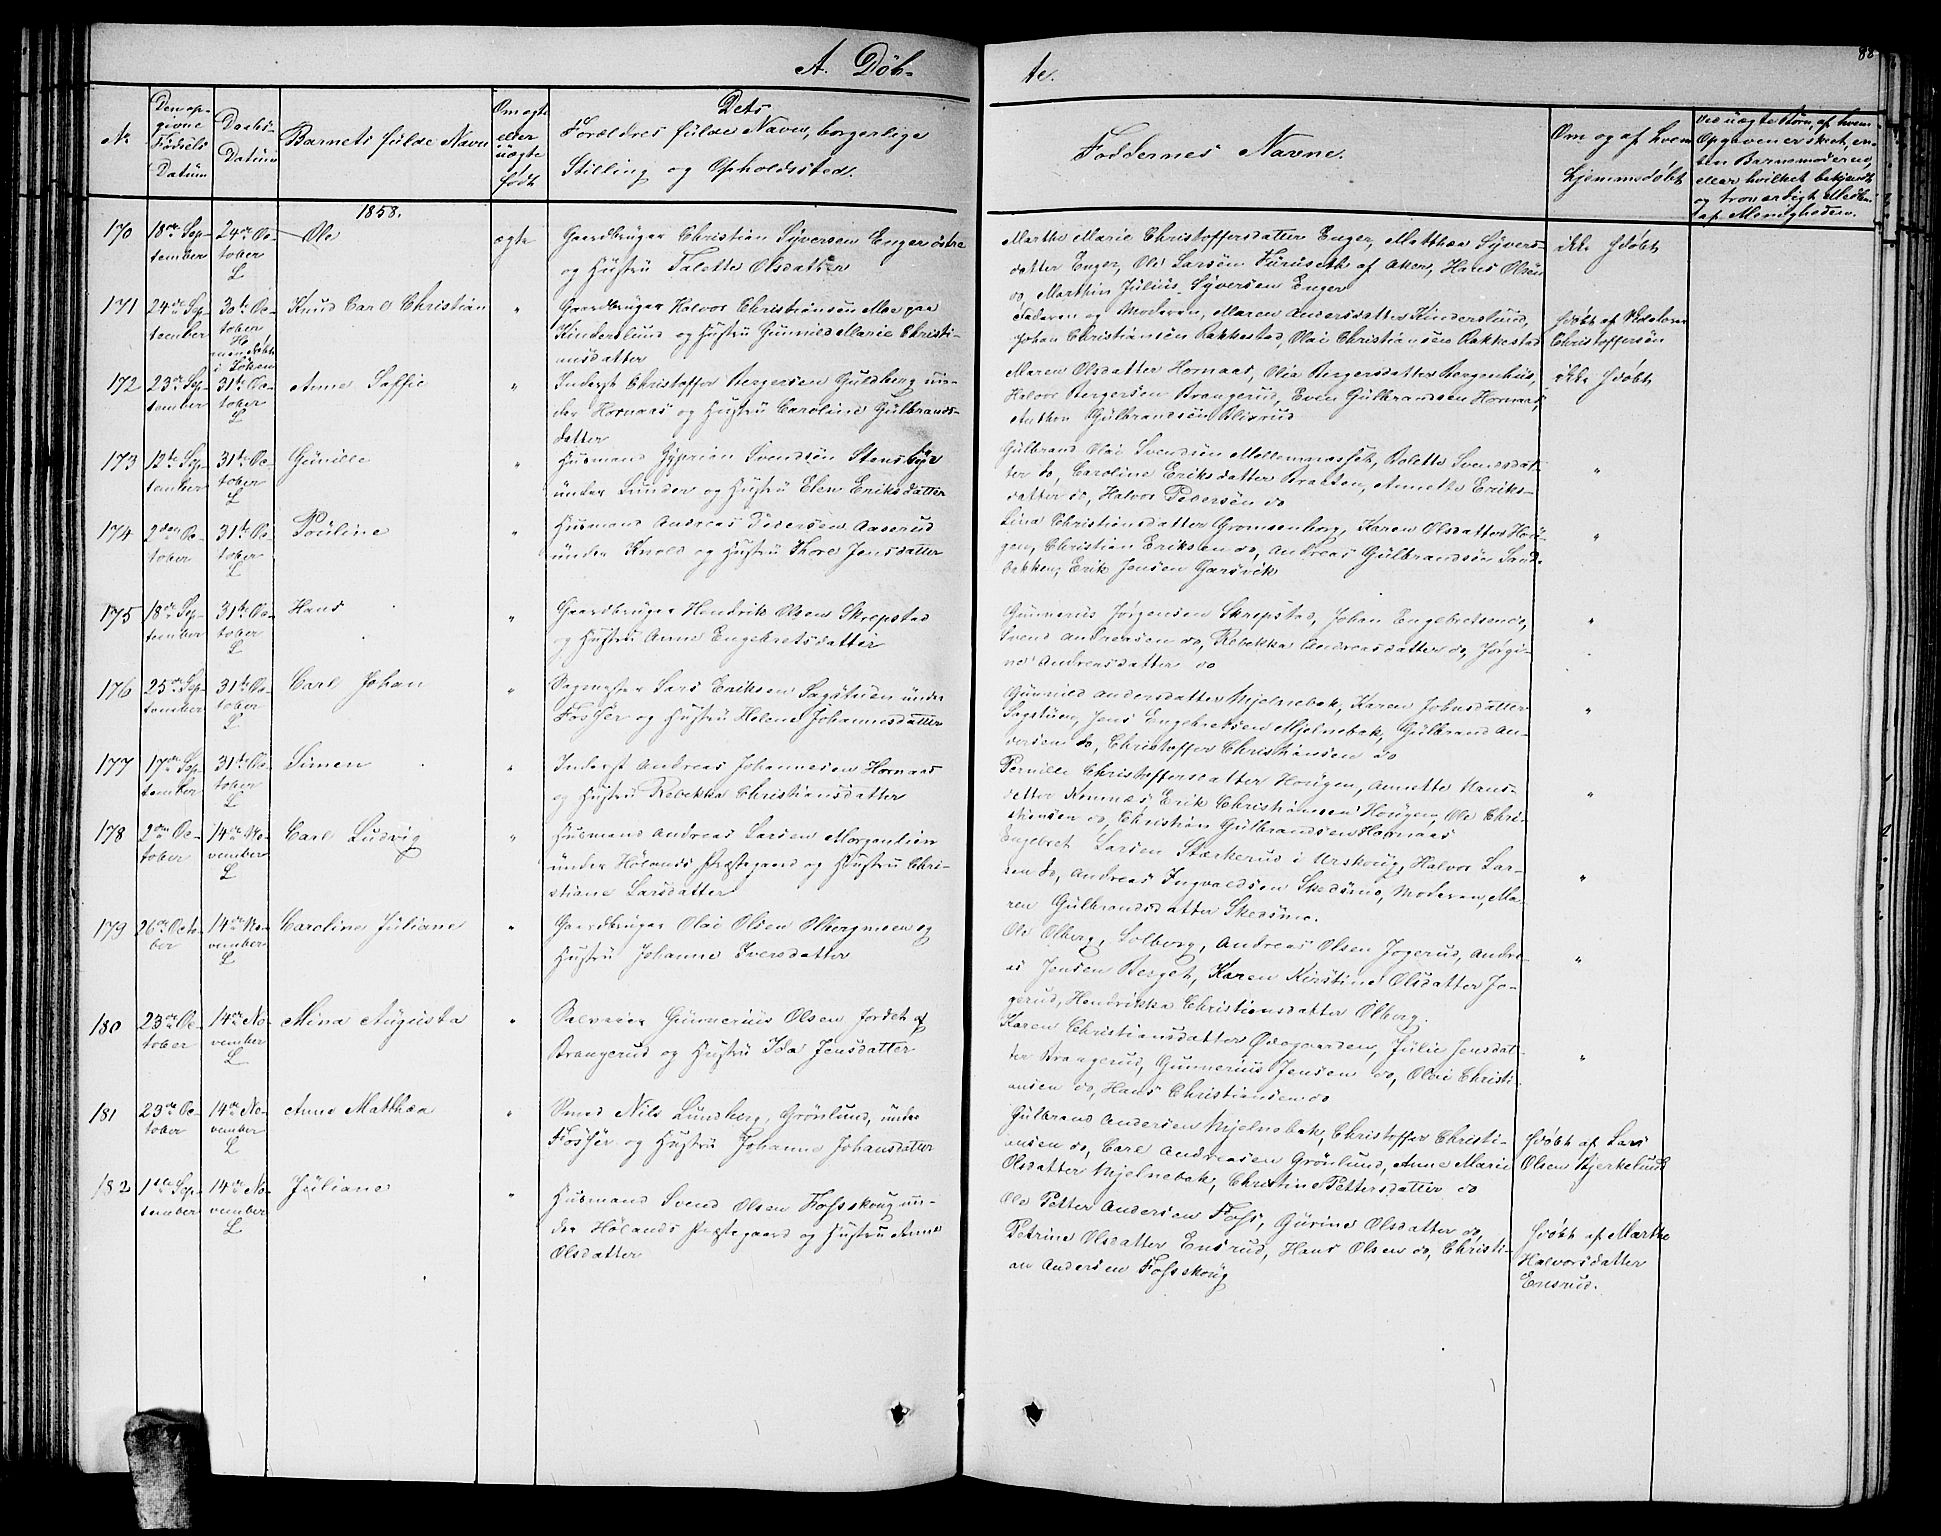 88
A. Döb-
te.
No
Den op-
givne
Födsels
Datum
Daabs-
Datum
Barnets fulde Navn
Om ægte
eller
uægte
født
Dets
Forældres fulde Navn, borgerlige
Stilling og Opholdssted.
Faddernes Navne.
Om og af hvem
hjemmedøbt
Ved uægte Børn, af hvem
Opgaven er skeet, en-
ten Barnemoderen,
eller hvilket bekjendt
og troværdigt Medlem
af Menigheden.
1858.
170
18de Sep-
tember
24de Oc-
tober
L
Ole
ægte
Gaardbruger Christian Syversen Enger östre
og Hustru Talette Olsdatter
Marthe Marie Christoffersdatter Enger, Matthea Syvers-
datter Enger, Ole Larsen Furuseth af Aker, Hans Olsen
do, Marthin Julius Syversen Enger
ikke hdöbt
171
24de Sep-
tember
30te Oc-
tober
H
Knud Carl Christian
"
Gaardbruger Halvor Christiansen Moe paa
Kinderslund og Hustru Gunnild Marie Christi-
ansdatter
Faderen og Moderen, Maren Andersdatter Kinderslund,
Johan Christiansen Rakkestad, Olai Christiansen Rakkestad
hdöbt af
Christoffersen
172
23de Sep-
tember
31te Oc-
tober
L
Anne Soffie
"
Inderst Christoffer Bergersen Guldberg un-
der Hornaas og Hustru Caroline Gulbrands-
datter
Maren Olsdatter Hornaas, Olia Bergersdatter Bergenhus,
Halvor Bergersen Brangerud, Even Gulbrandsen Hornaas,
Anthon Gulbrandsen Blixrud
ikke hdöbt
173
12te Sep-
tember
31te Oc-
tober
L
Gunille
"
Husmand Cyprian Svendsen Stensbye
under Lunder og Hustru Elen Eriksdatter
Gulbrand Olai Svendsen Mellemnæsset, Bolette Svendsdat-
ter do, Caroline Eriksdatter Braaten, Annette Eriks-
datter do, Halvor Pedersen do
"
174
2den Oc-
tober
31te Oc-
tober
L
Pouline
"
Husmand Andreas Pedersen Aaserud
under Knold og Hustru Thore Jensdatter
Lina Christiansdatter Gromsenborg, Karen Olsdatter Hou-
gen, Christian Eriksen do, Andreas Gulbrandsen Sand-
bakken, Erik Jensen Garsvik
"
175
18de Sep-
tember
31te Oc-
tober
L
Hans
"
Gaardbruger Hendrik Olsen Skrepstad
og Hustru Anne Engebretsdatter
Gunnerus Jørgensen Skrepstad, Johan Engebretsen do,
Svend Andreasen do, Rebekka Andreasdatter do, Jørgi-
ne Andreasdatter do
"
176
25de Sep-
tember
31te Oc-
tober
L
Carl Johan
"
Sagmester Lars Eriksen Sagstuen under
Fosser og Hustru Helene Johannesdatter
Gunnild Andersdatter Mjelnebak, Karen Johnsdatter
Sagstuen, Jens Engebretsen Mjelnebak, Gulbrand An-
dersen do, Christoffer Christiansen do
"
177
17de Sep-
tember
31te Oc-
tober
L
Simen
"
Inderst Andreas Johannesen Hornaas
og Hustru Rebekka Christiansdatter
Pernille Christoffersdatter Hougen, Annette Hans-
datter Komnæs, Erik Christiansen Hougen, Ole Chri-
stiansen do, Christian Gulbrandsen Hornaas
"
178
2den Oc-
tober
14de No-
vember
L
Carl Ludvig
"
Husmand Andreas Larsen Morgentien
under Hölands Præstegaard og Hustru Chri-
stiane Larsdatter
Engebret Larsen Stærkerud i Urskoug, Halvor Lar-
sen do, Andreas Ingvaldsen Skedsmo, Moderen, Ma-
ren Gulbrandsdatter Skedsmo.
"
179
26de Octo-
ber
14de No-
vember
L
Caroline Juliane
"
Gaardbruger Olai Olsen Olbergmoen og
Hustru Johanne Iversdatter
Ole Olberg, Solberg, Andreas Olsen Jogerud, Andre-
as Jensen Berget, Karen Kirstine Olsdatter Jo-
gerud, Hendrikka Christiansdatter Olberg.
"
180
23de Oc-
tober
14de No-
vember
L
Mina Augusta
"
Selveier Gunnerius Olsen Jordet af
Brangerud og Hustru Ida Jensdatter
Karen Christiansdatter Ødegaarden, Julie Jensdat-
ter Brangerud, Gunnerius Jensen do, Olai Christi-
ansen do, Hans Christiansen do
"
181
23de Oc-
tober
14de No-
vember
L
Anne Matthea
"
Smed Nils Lundberg, Grönlund, under
Fosser og Hustru Johanne Johansdatter
Gulbrand Andersen Mjelnebak, Christoffer Christi-
ansen do, Carl Andreasen Grönlund, Anne Marie
Olsdatter Mjelnebak, Christine Pettersdatter do
hdöbt af Lars
Olsen Bjerkelund
182
1ste Sep-
tember
14de No-
vember
L
Juliane
"
Husmand Svend Olsen Fossskoug un-
der Hölands Præstegaard og Hustru Anne
Olsdatter
Ole Petter Andersen Foss, Gurine Olsdatter do,
Petrine Olsdatter Ensrud, Hans Olsen do, Christi-
an Andersen Fossskoug
hdöbt af Marthe
Halvorsdatter
Ensrud.